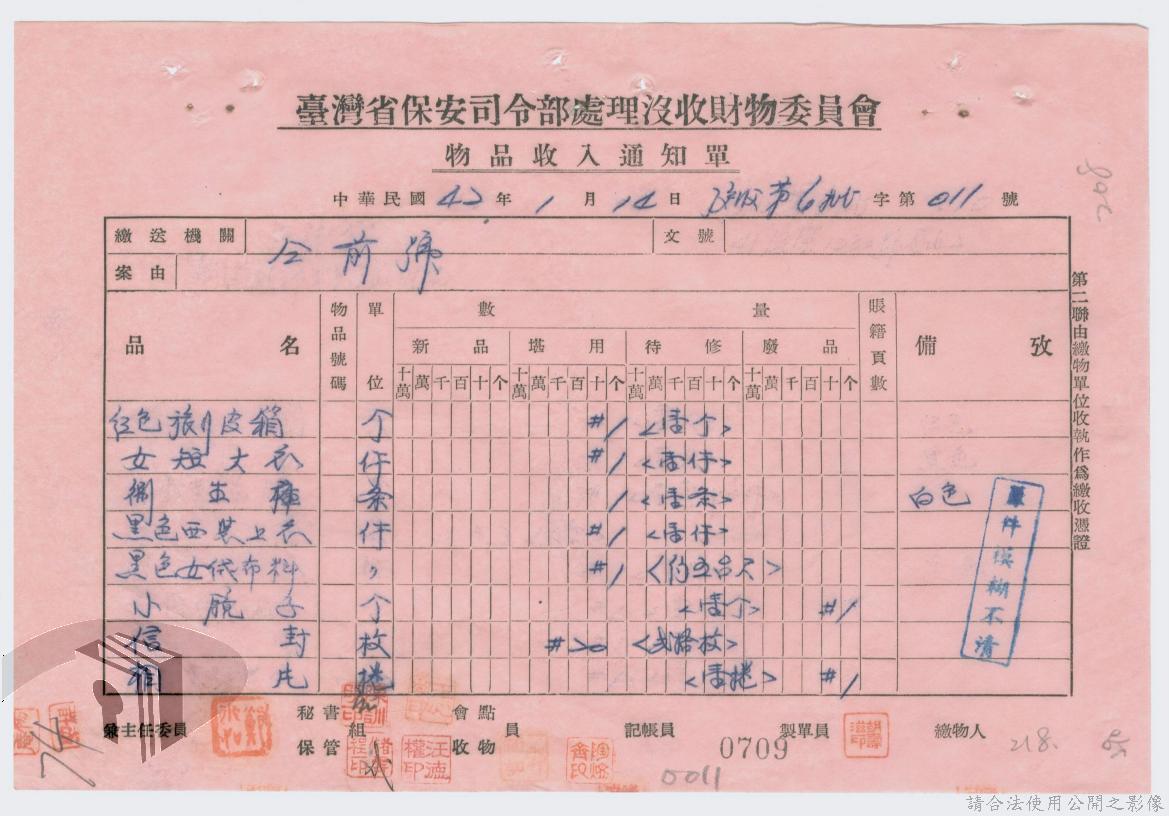 臺灣省保安司令部處理沒收財物委員會
物品收入通知單
中華民國42年1月14日 第6 字第011號
繳送機關 仝前號 文號
案由
品名 物品號碼 單位 數量 賬籍頁數 備攷
新品 堪用 待修 廢品
十萬 萬 千 百 十 个 十萬 萬 千 百 十 个 十萬 萬 千 百 十 个 十萬 萬 千 百 十 个
紅色旅行皮箱 个 #1 <壹个>
女短大衣 件 #1 <壹件>
条 1 <壹条> 白色
黑色西裝上衣 件 #1 <壹件>
黑色女伐布料 〃 #1 <約五台尺>
小 子 个 <壹个> #1
信封 枚 #20 <弍拾枚>
相片 捲 <壹捲> #1
第二聯由繳物單位收執作為繳收憑證
原件模糊不清
兼主任委員 秘書組 會點員 記帳員 製單員 繳物人
保管 收物
74
0709
0011
218.
208
請合法使用公開之影像